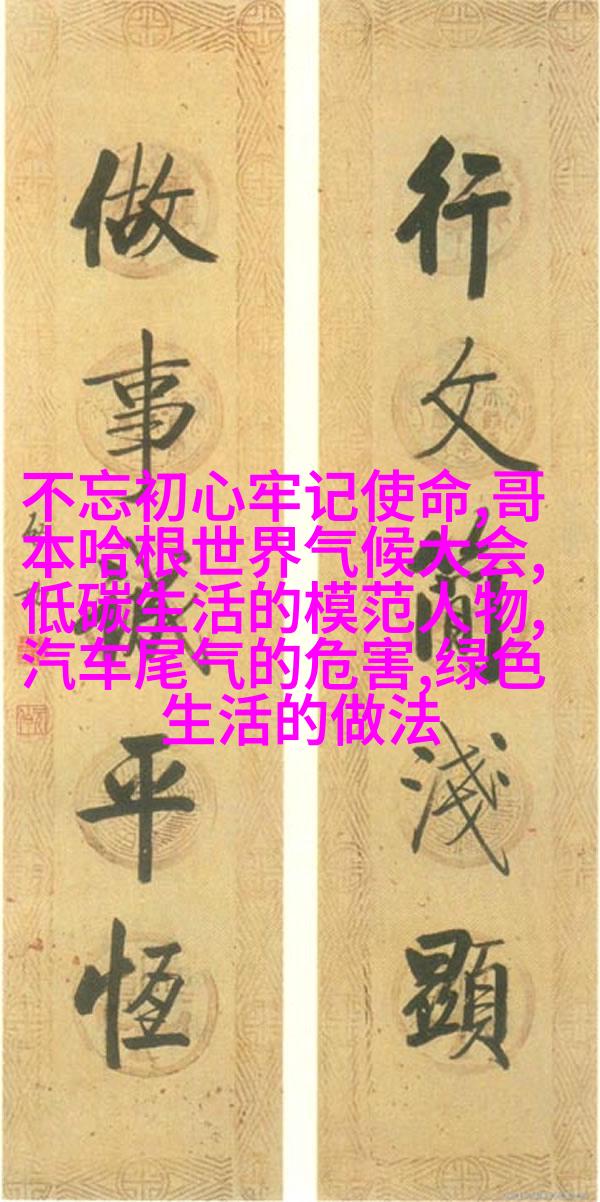 行文簡淺顯
做事誠平恆
不忘初心牢记使命,哥
本哈根世界气候大会,
低碳生活的模范人物,
汽车尾气的危害,绿色
生活的做法